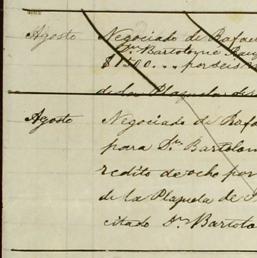 Agosto Negociado de Rafae
Dn. Bartolomé
$1500... por seis
de la Plazuela de
Agosto Negociado de Rafa
para Dn. Bartolom
redito de ocho por
de la Plazuela de
citado Dn. Bartolo